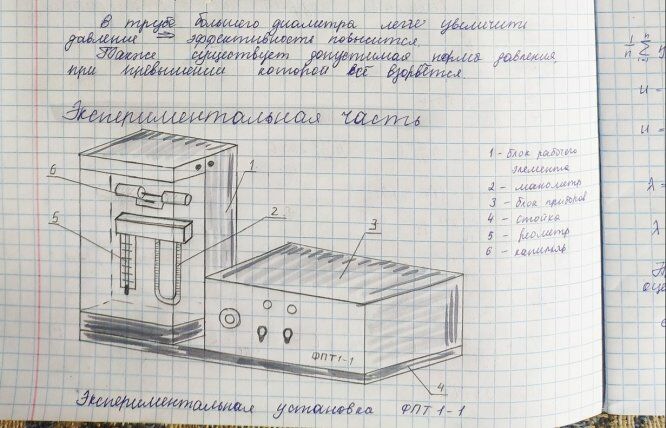 В трубе большего диаметра легче увеличить
давление ⇒ эффективность повысится.
Также существует допустимая норма давления,
при превышении которой всё взорвётся.
Экспериментальная часть
1 - блок рабочего
элемента
2 - манометр
3 - блок приборов
4 - стойка
5 - реометр
6 - капилляр
6
1
5
2
3
ФПТ1-1
4
Экспериментальная установка ФПТ 1-1
1/n ∑ i=1 n
u =
u =
λ =
λ